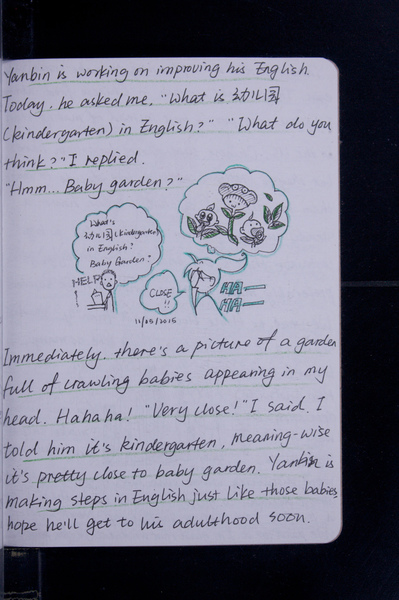 Yanbin is working on improving his English.
Today, he asked me, "What is 幼儿园
(kindergarten) in English?" "What do you
think?" I replied.
"Hmm... Baby garden?"
What's
幼儿园 (kindergarten
in English?
Baby Garden?
HELP!
CLOSE
!!
HA—
HA—
11/05/2015
Immediately, there's a picture of a garden
full of crawling babies appearing in my
head. Hahaha! "Very close!" I said. I
told him it's kindergarten, meaning-wise
it's pretty close to baby garden. Yanbin is
making steps in English just like those babies,
hope he'll get to his adulthood soon.